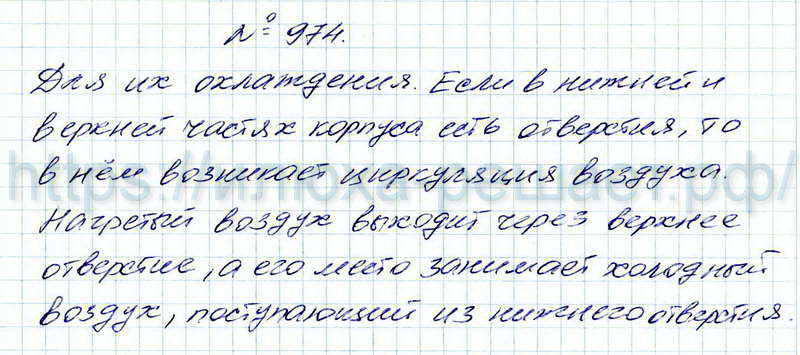 № 974.
Для их охлаждения. Если в нижней и
верхней частях корпуса есть отверстия, то
в нём возникает циркуляция воздуха.
Нагретый воздух выходит через верхнее
отверстие, а его место занимает холодный
воздух, поступающий из нижнего отверстия.